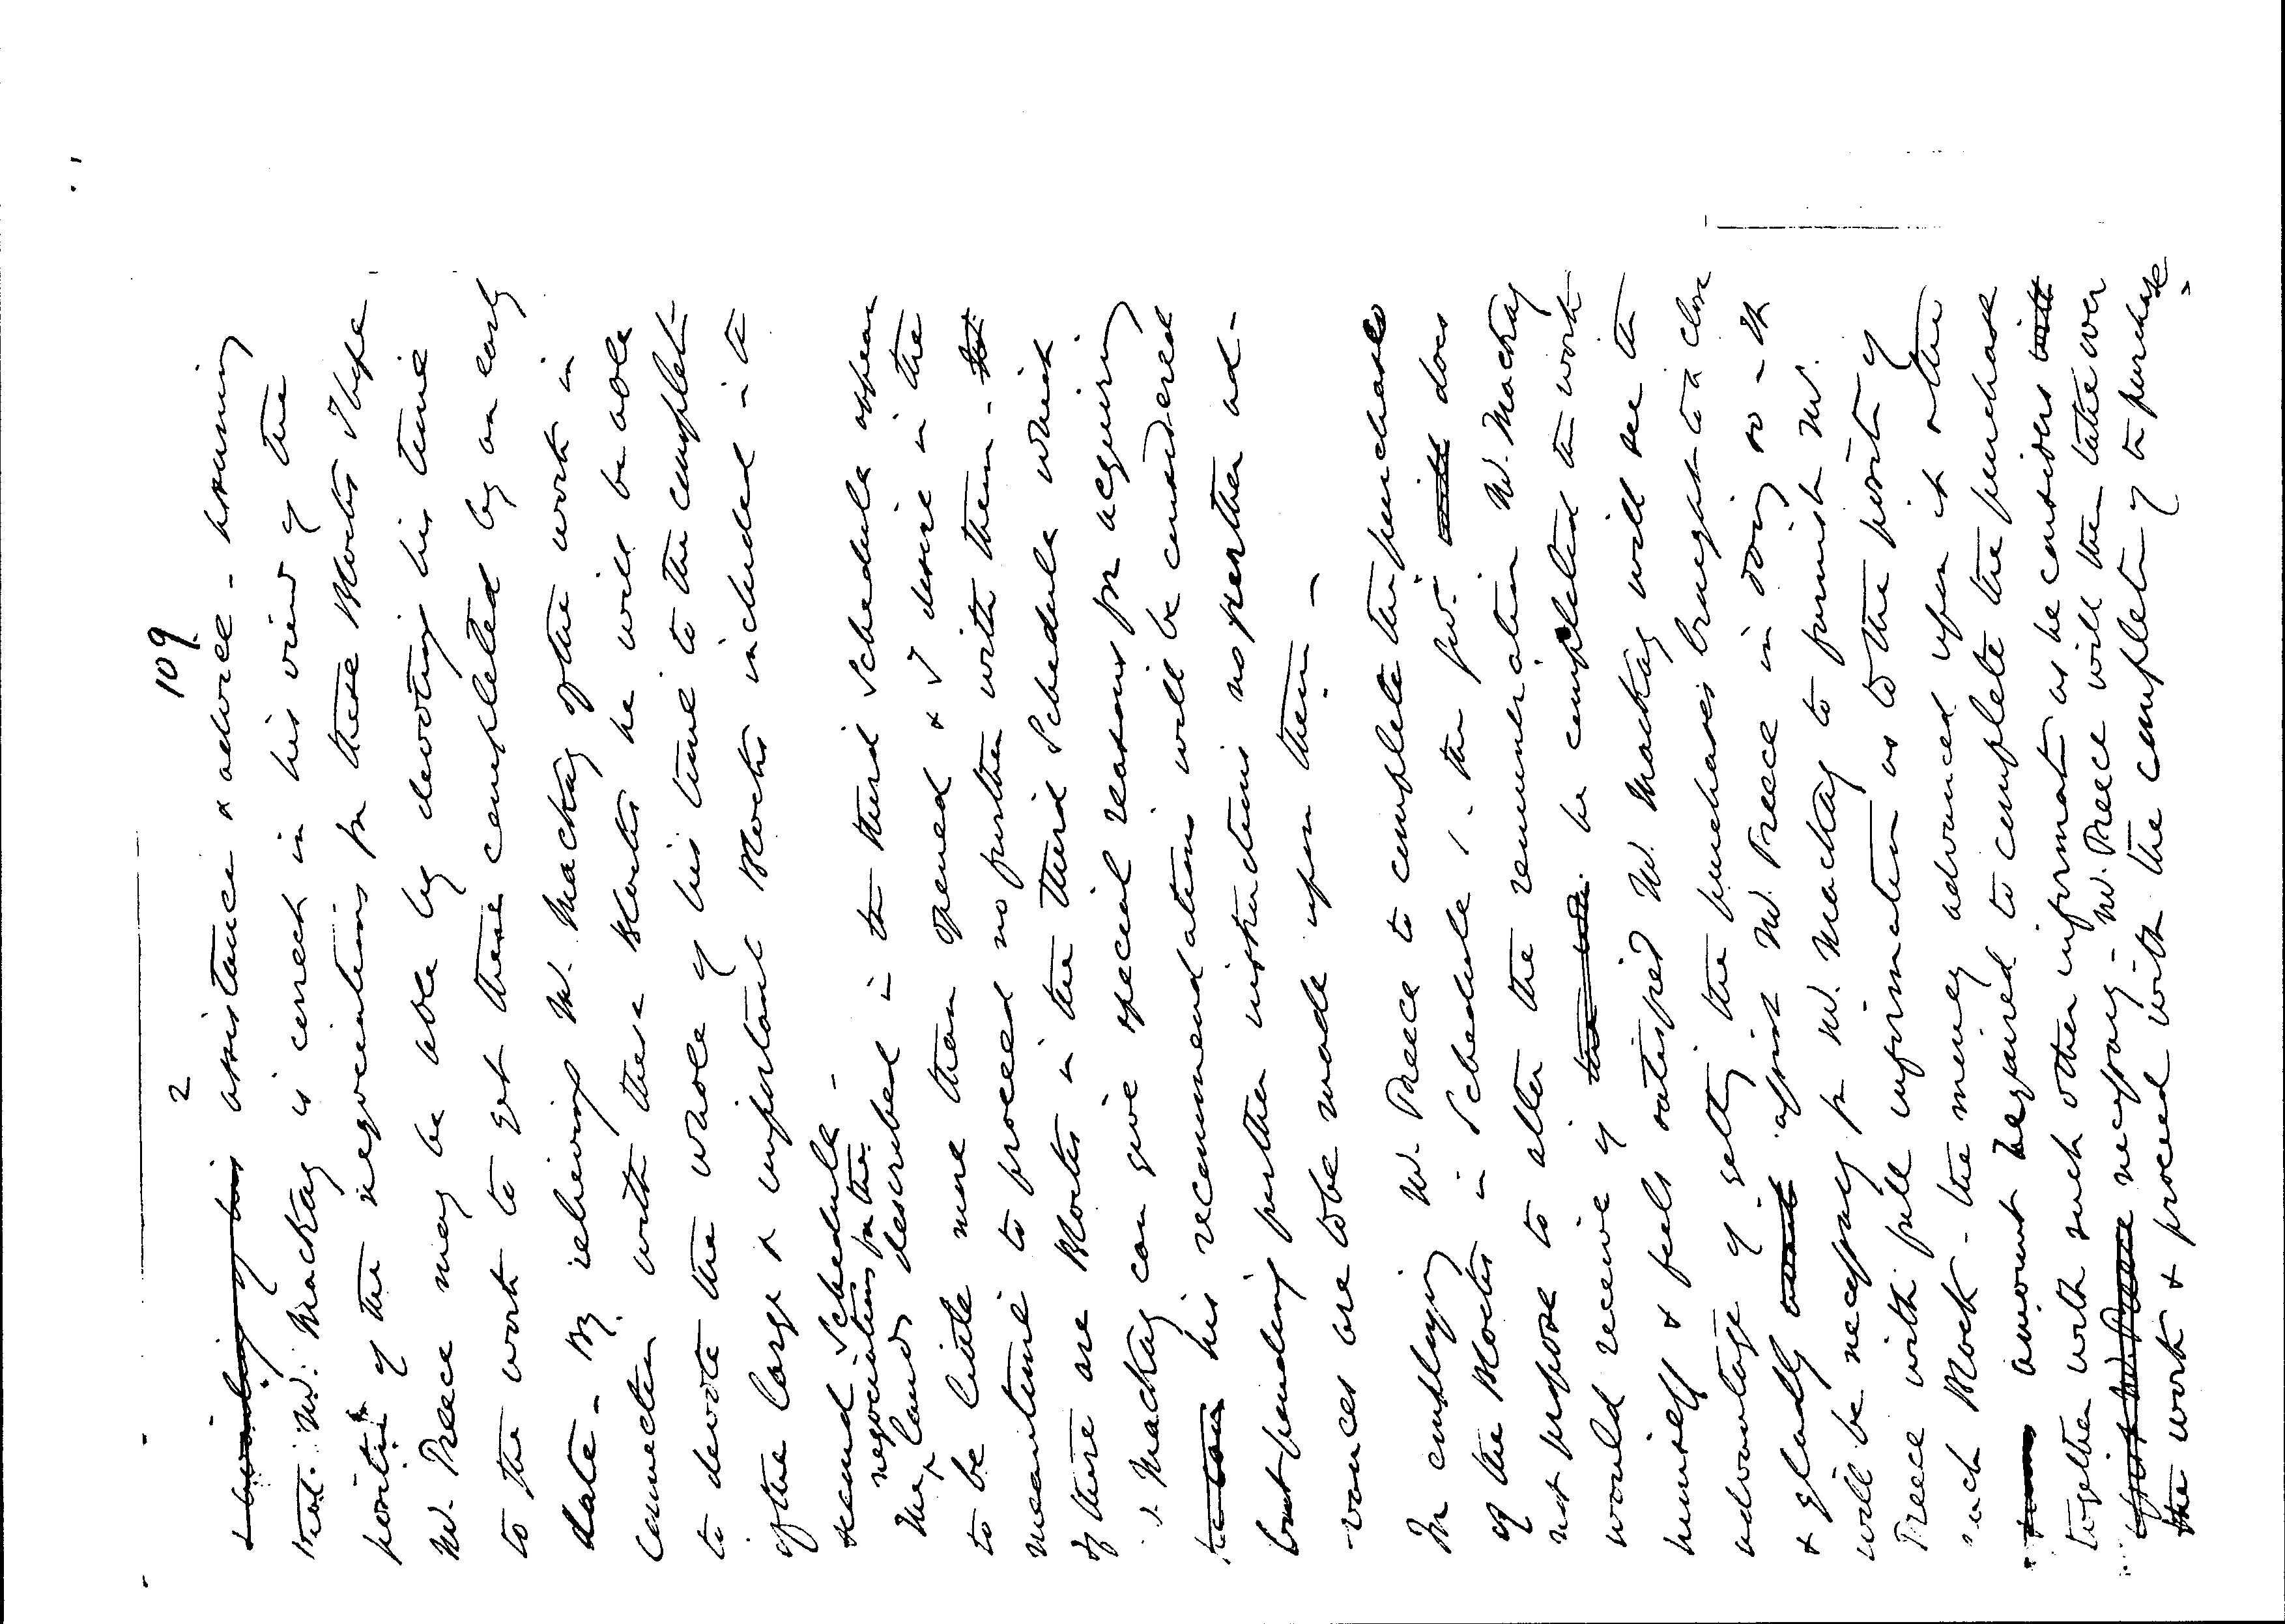 109
2
& availing of his assistance & advice - assuming
that Mr. Mackay is correct in his view of the
position of the negociations for these Blocks I hope
Mr. Preece may be able by devoting his time
to the work to get these completed by an early
date - By relieving Mr. Mackay of the work in
connection with these Blocks he will be able
to devote the whole of his time to the completn
of the large & important Blocks included in the
second Schedule -
negociations for the
The lands described in the third Schedule appear
to be little more than opened & I desire in the
meantime to proceed no further with them -
If there are Blocks in the Third Schedule which
Mr Mackay can give special reasons for acquiring
his recommendations will be considered
but pending further instructions no further ad-
-vances are to be made upon them -
In employing Mr. Preece to complete the purchases
of the Blocks in Schedule 1. the Govt. does
not propose to alter the remuneration Mr. Mackay
would receive if be completed the work
himself & feels satisfied Mr. Mackay will see the
advantage of getting the purchases brought to a close
& gladly assist Mr. Preece in doing so - It
will be necessary for Mr. Mackay to furnish Mr.
Preece with full information as to the positn of
each Block - the money advanced upon it & the
amount required to complete the purchase
together with such other informatn as he considers
necessary - Mr. Preece will then take over
the work & proceed with the completn of the purchase